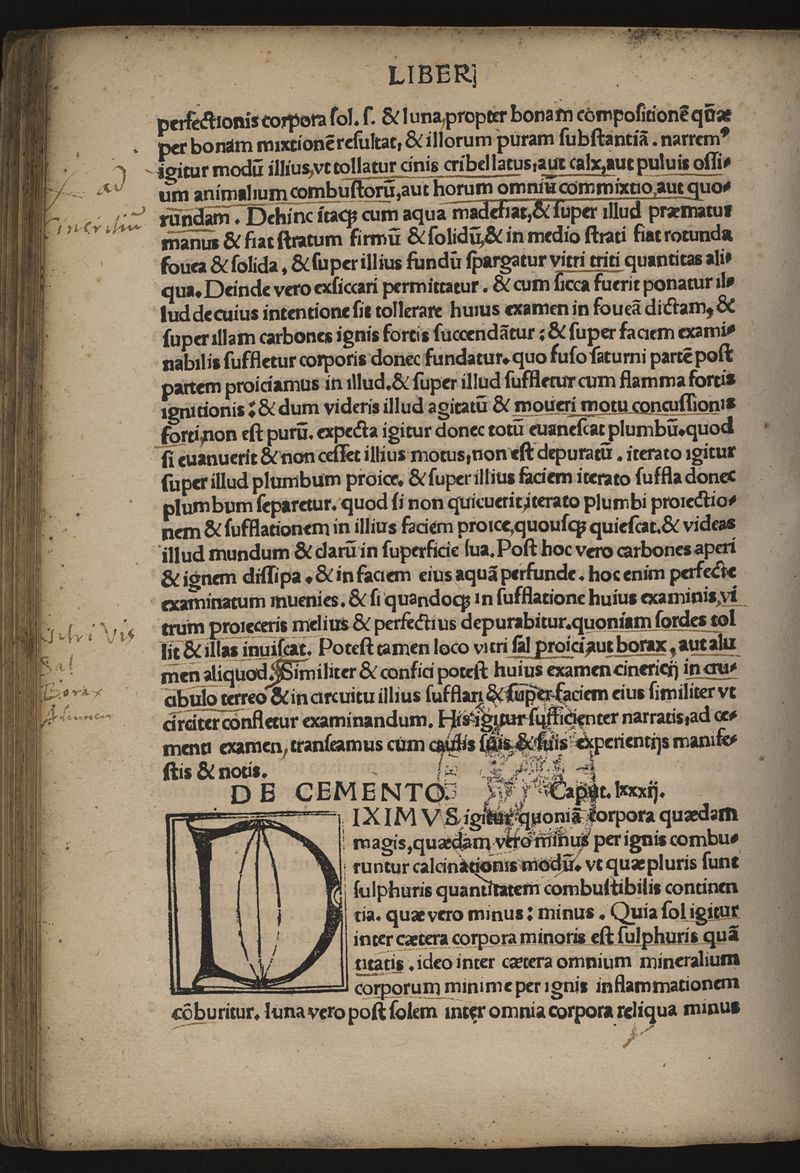 LIBER
perfectionis corpora ſol. ſ. & luna, propter bonam compoſitionē q̄ꝫ
per bonam mixtionē reſultat, & illorum puram ſubſtantiā. narrem⁹
igitur modū illius, vt tollatur cinis cribellatus, aut calx, aut puluis oſſi-
um animalium combuſtorū, aut horum omniū commixtio, aut quo-
rundam. Dehinc itaqꝫ cum aqua madefiat, & ſuper illud præmatur
ad
Cineritiū
manus & fiat ſtratum firmū & ſolidū, & in medio ſtrati fiat rotunda
fouea & ſolida, & ſuper illius fundū ſpargatur vitri triti quantitas ali-
qua. Deinde vero exſiccari permittatur. & cum ſicca fuerit ponatur il-
lud de cuius intentione ſit tollerare huius examen in foueā dictam, &
ſuper illam carbones ignis fortis ſuccendātur: & ſuper faciem exami-
nabilis ſuffletur corporis donec fundatur. quo fuſo ſaturni partē poſt
partem proiciamus in illud. & ſuper illud ſuffletur cum flamma fortis
ignitionis: & dum videris illud agitatū & moueri motu concuſſionis
forti, non eſt purū. expecta igitur donec totū euaneſcat plumbū. quod
ſi euanuerit & non ceſſet illius motus, non eſt depuratū. iterato igitur
ſuper illud plumbum proice. & ſuper illius faciem iterato ſuffla donec
plumbum ſeparetur. quod ſi non quieuerit, iterato plumbi proiectio-
nem & ſufflationem in illius faciem proice, quouſqꝫ quieſcat. & videas
illud mundum & clarū in ſuperficie ſua. Poſt hoc vero carbones aperi
& ignem diſſipa. & in faciem eius aquā perfunde. hoc enim perfecte
examinatum inuenies. & ſi quandoqꝫ in ſufflatione huius examinis, vi
trum proieceris melius & perfectius depurabitur. quoniam ſordes tol
lit & illas inuiſcat. Poteſt tamen loco vitri ſal proici, aut borax, aut alu
Vitri Vis
Sal
Borax
Alumen
men aliquod. Similiter & confici poteſt huius examen cinericij in cru-
cibulo terreo & in circuitu illius ſufflari & ſuper faciem eius ſimiliter vt
circiter confletur examinandum. His igitur ſufficienter narratis, ad ce-
menti examen, tranſeamus cum cauſis ſuis & ſuis experientijs manife-
ſtis & notis.
DE CEMENTO. Caput. lxxxij.
DIXIMVS igitur quoniā corpora quædam
magis, quædam vero minus per ignis combu-
runtur calcinationis modū. vt quæ pluris ſunt
ſulphuris quantitatem combuſtibilis continen
tia. quæ vero minus: minus. Quia ſol igitur
inter cætera corpora minoris eſt ſulphuris quā
titatis. ideo inter cætera omnium mineralium
corporum minime per ignis inflammationem
cōburitur. luna vero poſt ſolem inter omnia corpora reliqua minus